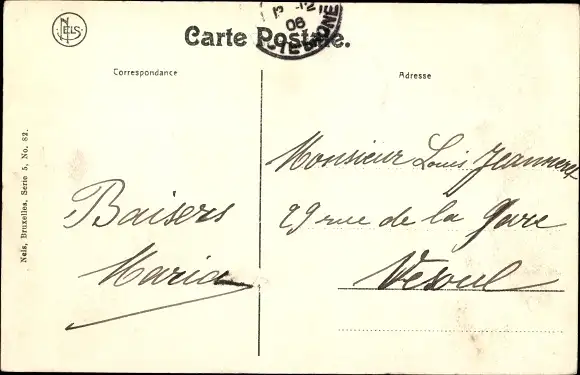 NELS
12
08
Carte Postale.
Correspondance
Adresse
Nels, Bruxelles, Serie 5, No. 82.
Baisers
Maria
Monsieur Louis Jeanneret
29 rue de la Gare
Vesoul